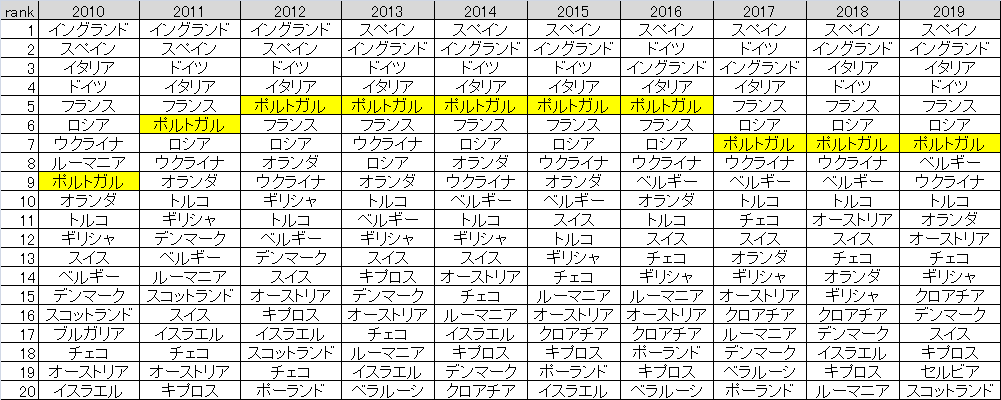 rank 2010 2011 2012 2013 2014 2015 2016 2017 2018 2019
1 イングランド イングランド イングランド スペイン スペイン スペイン スペイン スペイン スペイン スペイン
2 スペイン スペイン スペイン イングランド イングランド イングランド ドイツ ドイツ イングランド イングランド
3 イタリア ドイツ ドイツ ドイツ ドイツ ドイツ イングランド イングランド イタリア イタリア
4 ドイツ イタリア イタリア イタリア イタリア イタリア イタリア イタリア ドイツ ドイツ
5 フランス フランス ポルトガル ポルトガル ポルトガル ポルトガル ポルトガル フランス フランス フランス
6 ロシア ポルトガル フランス フランス フランス フランス フランス ロシア ロシア ロシア
7 ウクライナ ロシア ロシア ウクライナ ロシア ロシア ロシア ポルトガル ポルトガル ポルトガル
8 ルーマニア ウクライナ オランダ ロシア オランダ ウクライナ ウクライナ ウクライナ ウクライナ ベルギー
9 ポルトガル オランダ ウクライナ オランダ ウクライナ オランダ ベルギー ベルギー ベルギー ウクライナ
10 オランダ トルコ ギリシャ トルコ ベルギー ベルギー オランダ トルコ トルコ トルコ
11 トルコ ギリシャ トルコ ベルギー トルコ スイス トルコ チェコ オーストリア オランダ
12 ギリシャ デンマーク ベルギー ギリシャ ギリシャ トルコ スイス スイス スイス オーストリア
13 スイス ベルギー デンマーク スイス スイス ギリシャ チェコ オランダ チェコ チェコ
14 ベルギー ルーマニア スイス キプロス オーストリア チェコ ギリシャ ギリシャ オランダ ギリシャ
15 デンマーク スコットランド オーストリア デンマーク チェコ ルーマニア ルーマニア オーストリア ギリシャ クロアチア
16 スコットランド スイス キプロス オーストリア ルーマニア オーストリア オーストリア クロアチア クロアチア デンマーク
17 ブルガリア イスラエル イスラエル チェコ イスラエル クロアチア クロアチア ルーマニア デンマーク スイス
18 チェコ チェコ スコットランド ルーマニア キプロス キプロス ポーランド デンマーク イスラエル キプロス
19 オーストリア オーストリア チェコ イスラエル デンマーク ポーランド キプロス ベラルーシ キプロス セルビア
20 イスラエル キプロス ポーランド ベラルーシ クロアチア イスラエル ベラルーシ ポーランド ルーマニア スコットランド